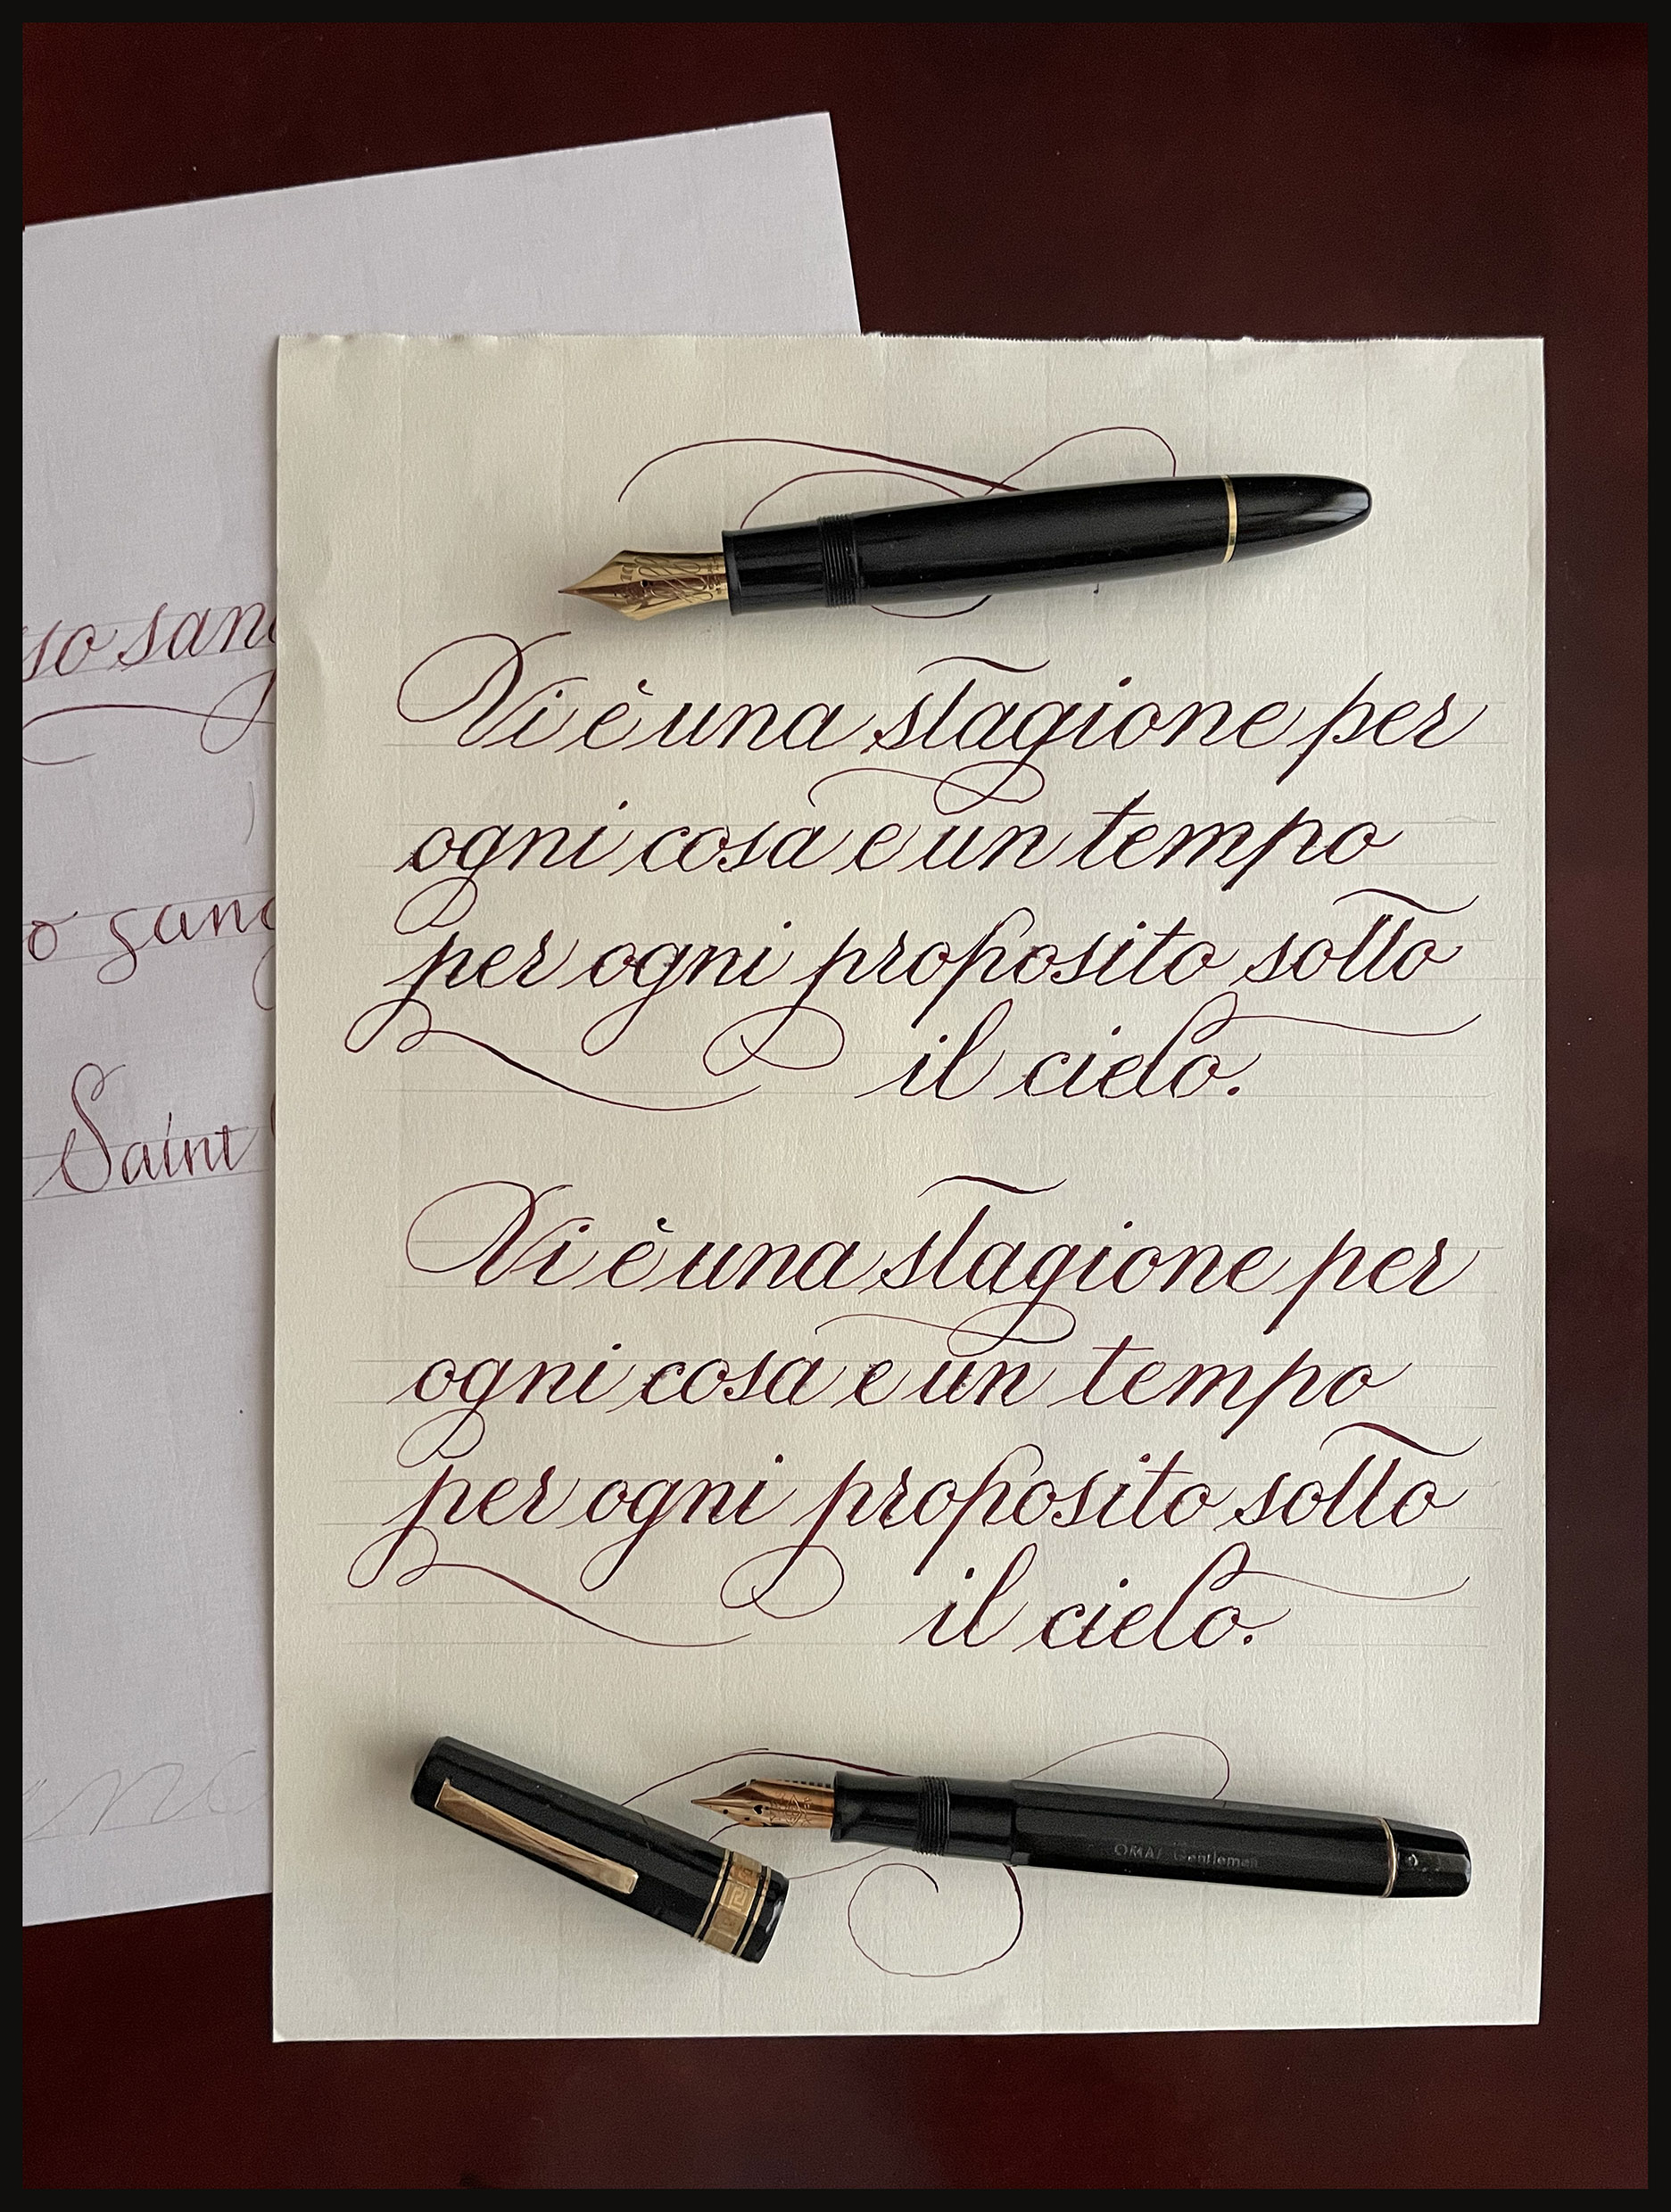 so
o
Saint
Vi è una stagione per
ogni cosa e un tempo
per ogni proposito sotto
il cielo.
Vi è una stagione per
ogni cosa e un tempo
per ogni proposito sotto
il cielo.
OMAS Gentlemen